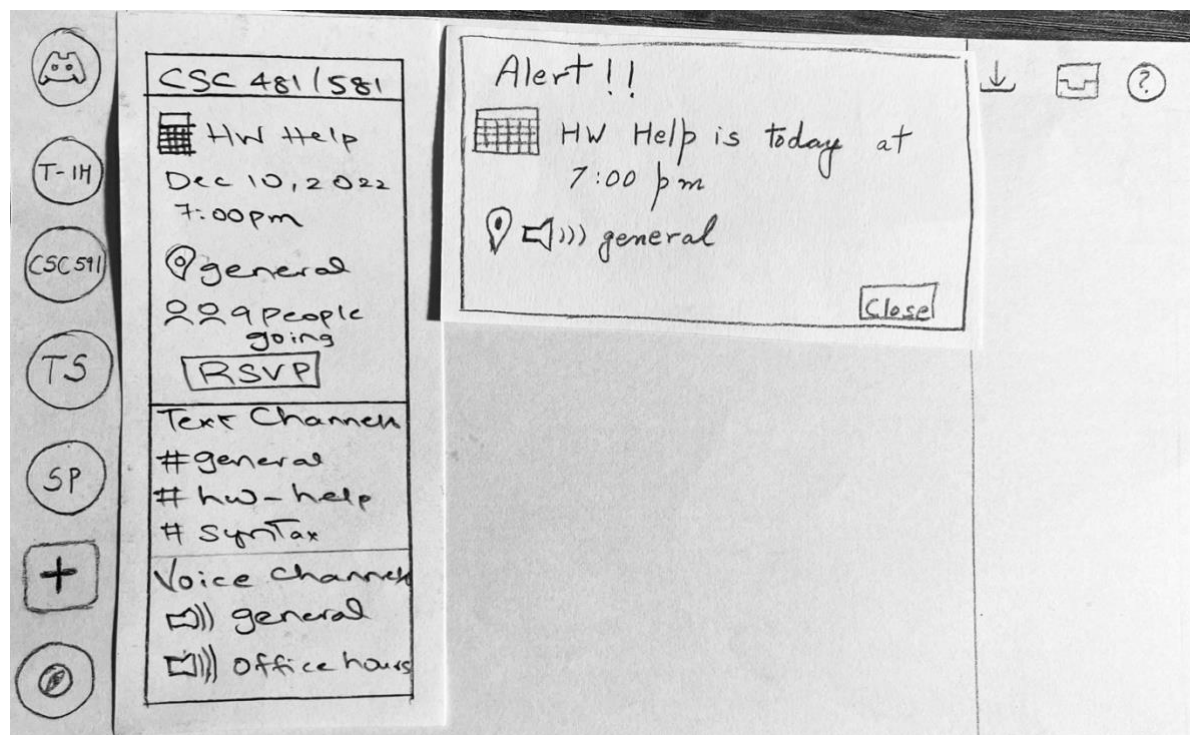 T-1H
CSC 591
TS
SP
+
CSC 481/581
HW Help
Dec 10, 2022
7:00pm
general
9 people
going
RSVP
Text Channels
# general
# hw-help
# syntax
Voice Channels
general
office hours
Alert!!
HW Help is today at
7:00 pm
general
Close
?